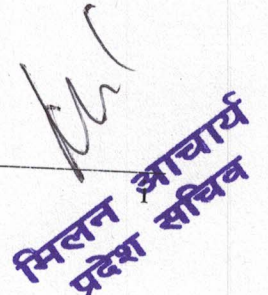 मिलन आचार्य
प्रदेश सचिव
1